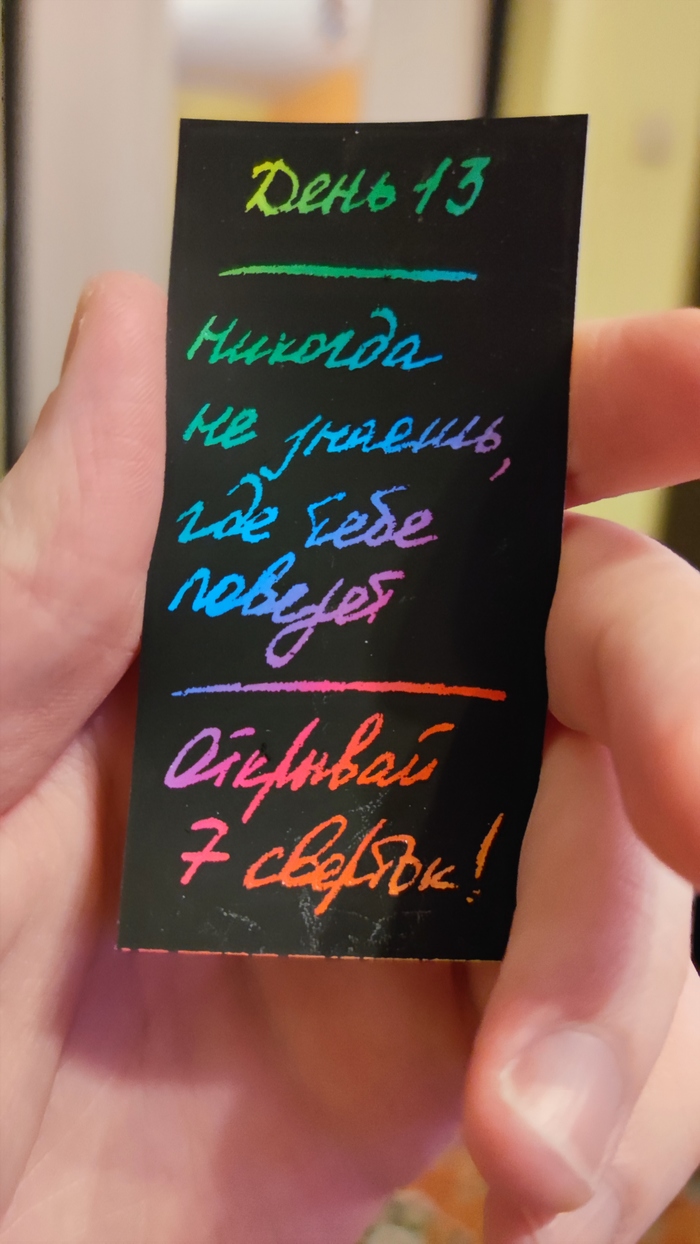 День 13
Никогда
не знаешь,
где тебе
повезёт
Открывай
7 свёрток!